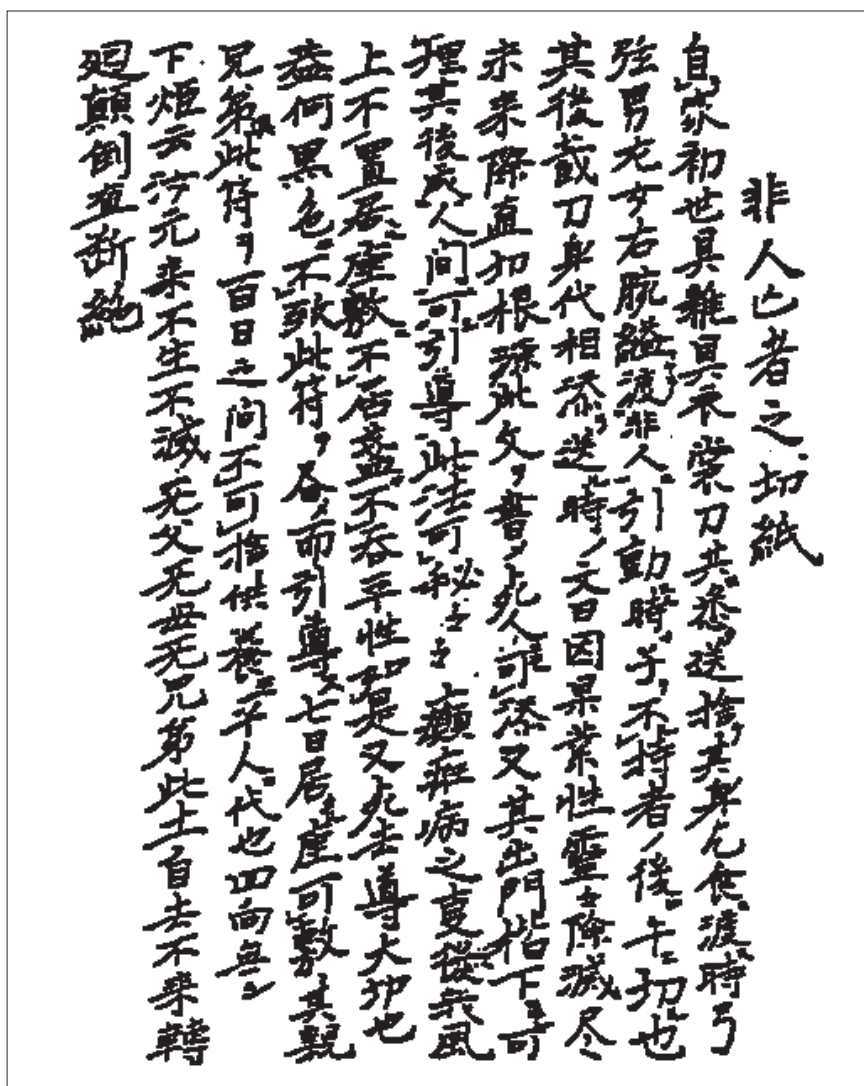 非人亡者之切紙
自家初世具雜具衣裳刀共悉送捨其身乞食渡時弓
弦男左女右腕縊渡非人引動時子不持者ノ後千切也
其後截刀身代相添送時ノ文曰因果業性霊去除滅尽
未来際直切根源此文ヲ書ノ死人可添又其出門楷下可
埋其後成人間可引導此法可秘々々 癩病之叓從無風
上不置居座敷不居盃不呑平性如是又死去導大切也
何黒色不致此符ヲ呑而引導七日居座可敷其親
兄弟此符ヲ百日之間不可捨供養平人代也回向無
下炬云汝元来不生不滅死父死母死兄弟此土自去不来轉
廻顛倒直断絶